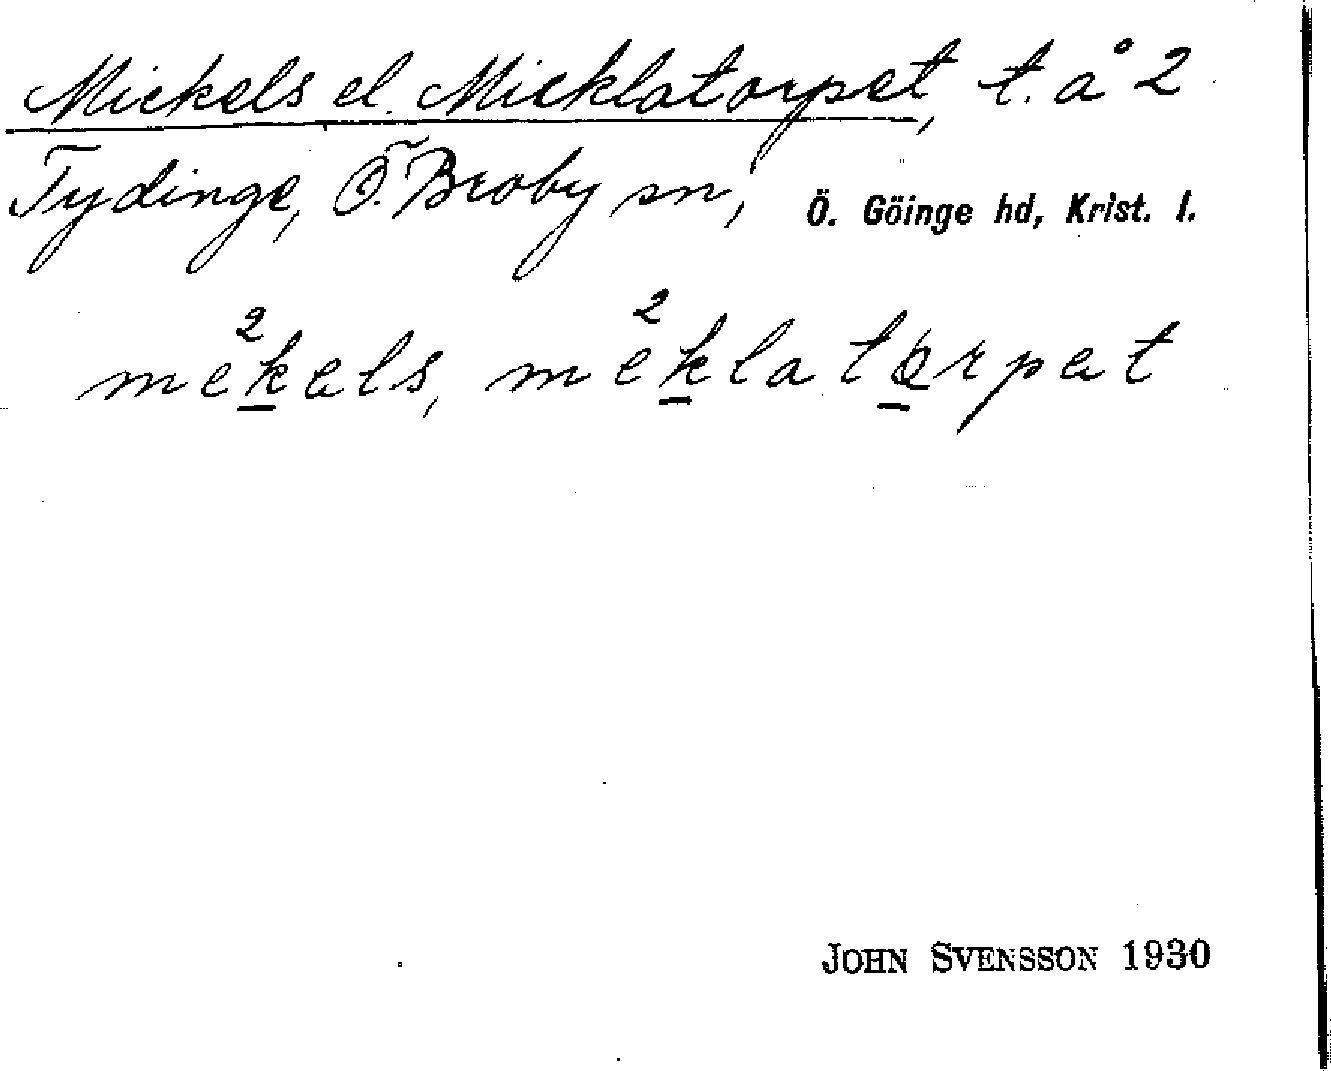 Mickels el. Micklatorpet, t. å 2
Tydinge, Ö. Broby sn, Ö. Göinge hd, Krist. l.
me²kels, me²klatorpet
JOHN SVENSSON 1930